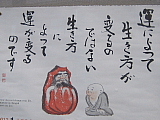 運によって
生き方が
変るの
ではない
生き方
に
よって
運が変る
のです